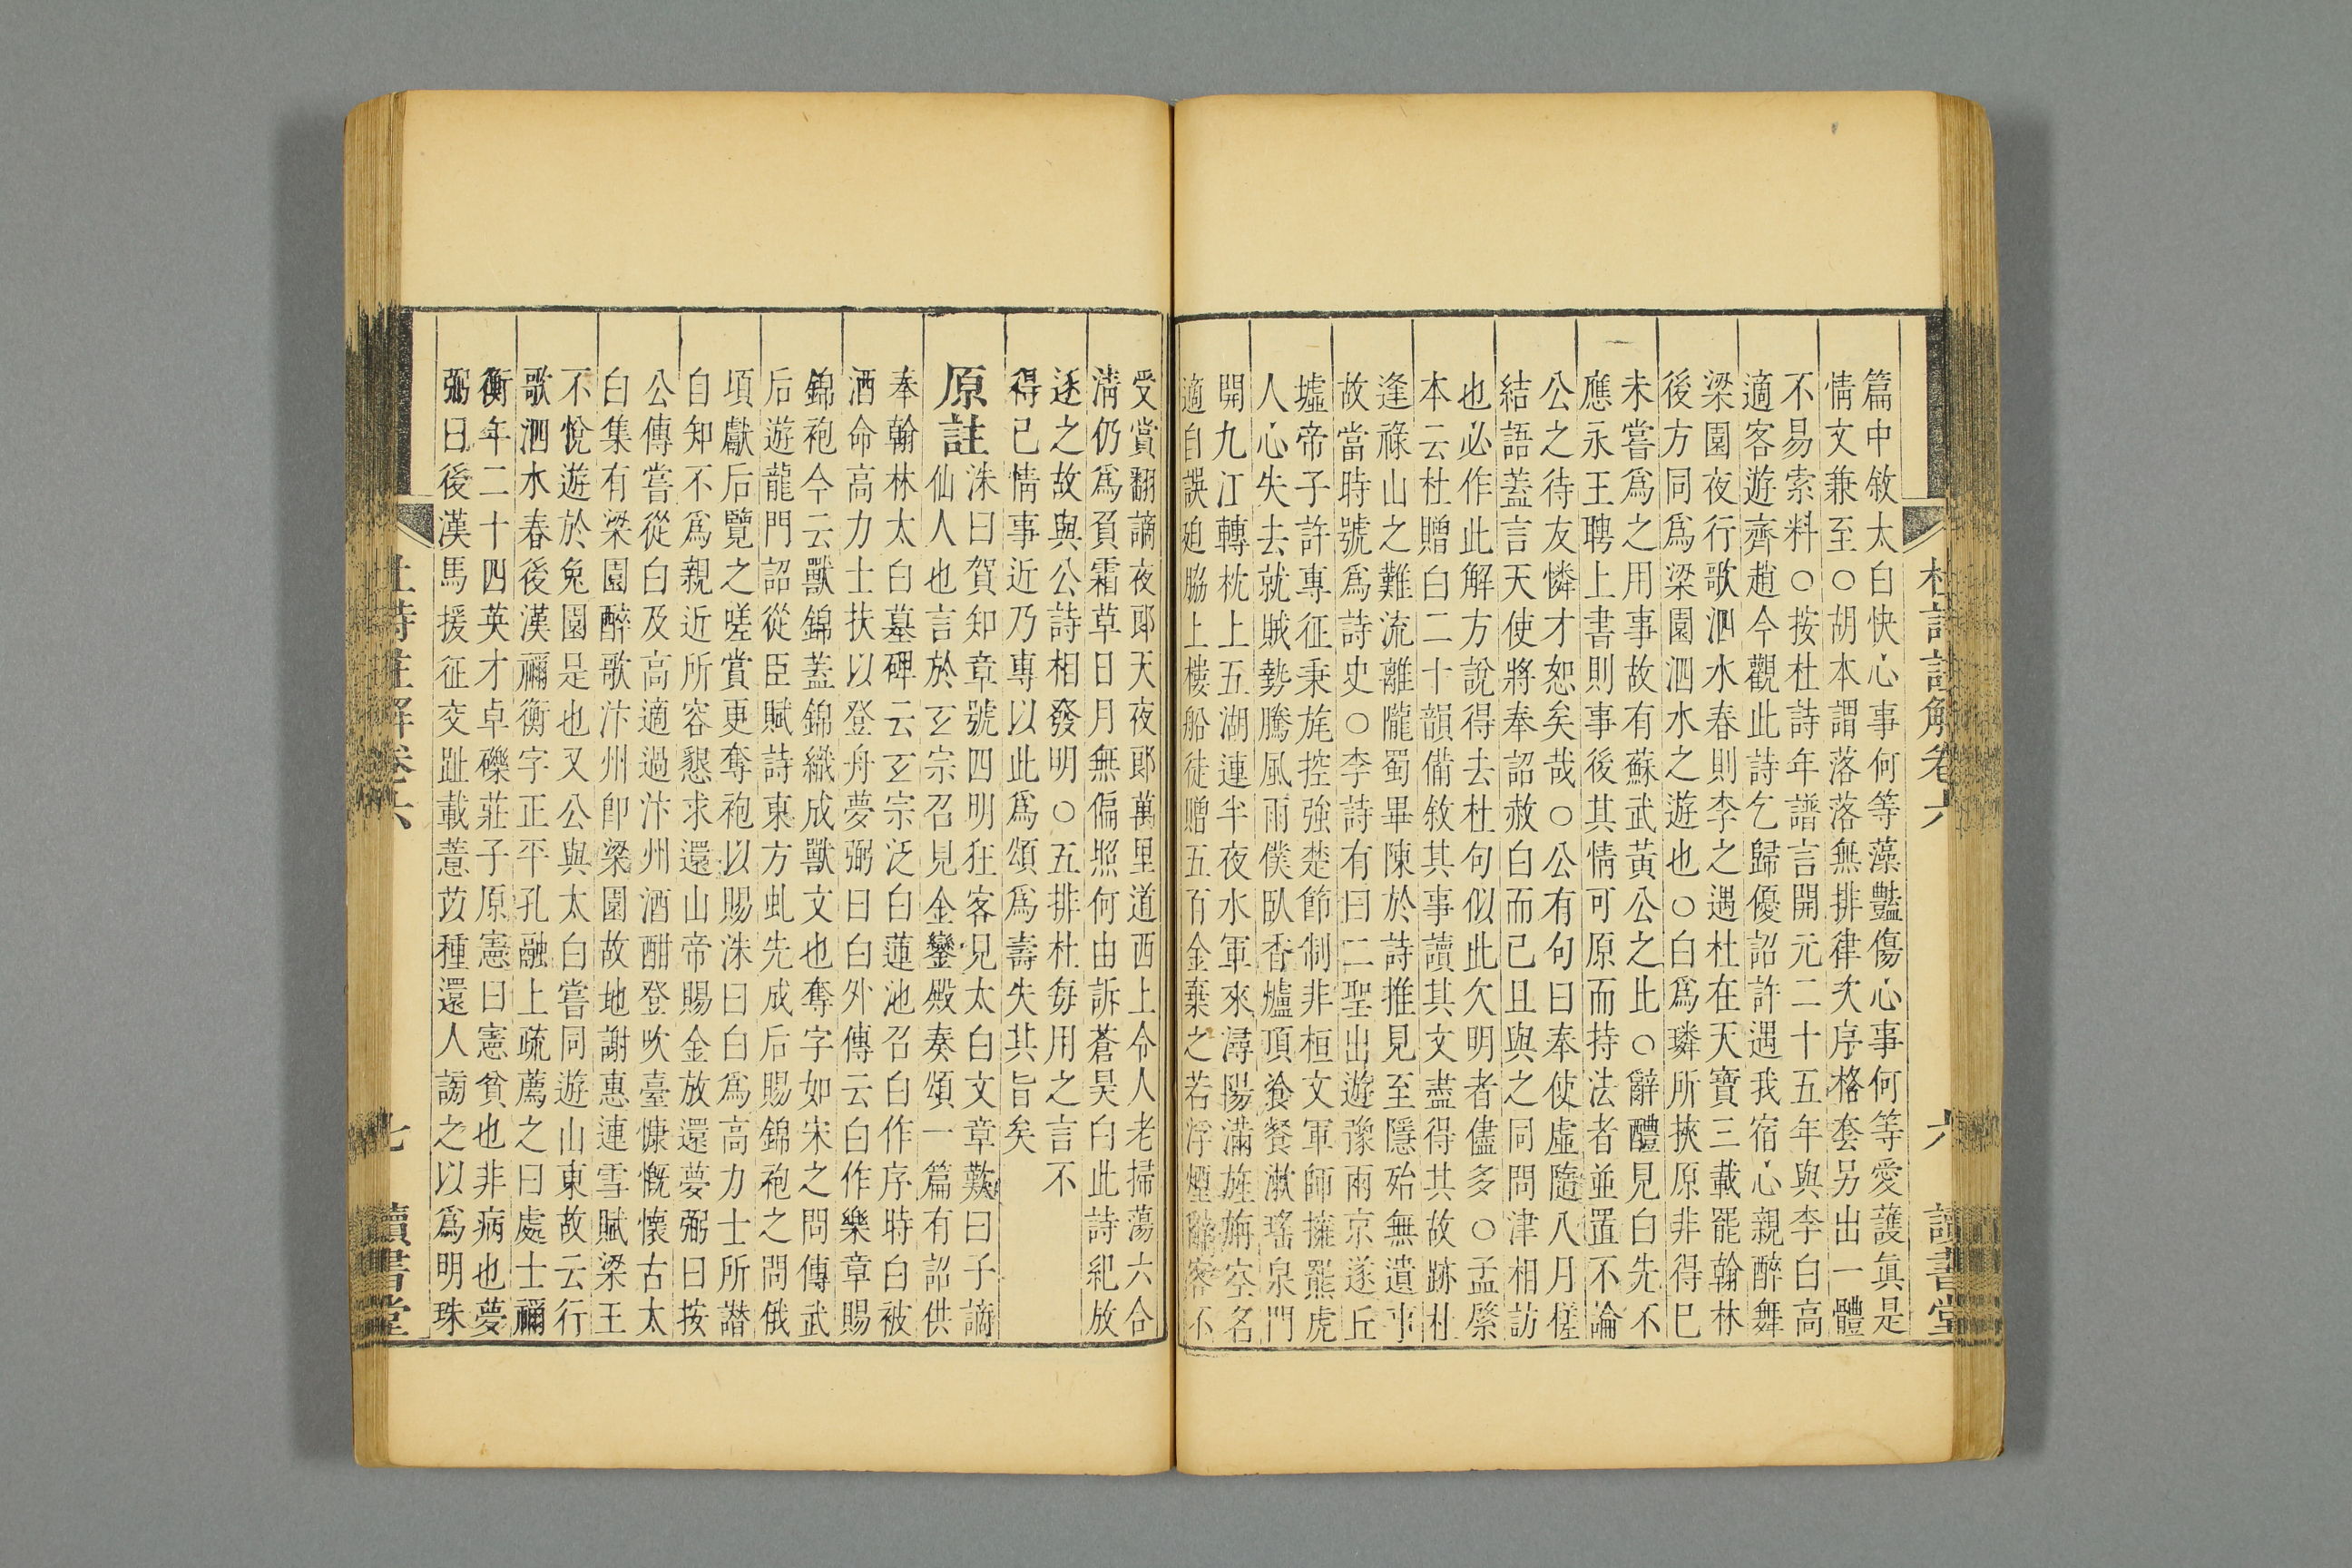 杜詩註解卷六　六　讀書堂
篇中敘太白快心事何等藻豔傷心事何等愛護眞是
情文兼至○胡本謂落落無排律次序格套另出一體
不易索料○按杜詩年譜言開元二十五年與李白高
適客遊齊趙今觀此詩乞歸優詔許遇我宿心親醉舞
梁園夜行歌泗水春則李之遇杜在天寶三載罷翰林
後方同爲梁園泗水之遊也○白爲璘所挾原非得已
未嘗爲之用事故有蘇武黃公之比○辭醴見白先不
應永王聘上書則事後其情可原而持法者並置不論
公之待友憐才恕矣哉○公有句曰奉使虛隨八月槎
結語蓋言天使將奉詔赦白而已且與之同問津相訪
也必作此解方說得去杜句似此欠明者儘多○孟棨
本云杜贈白二十韻備敘其事讀其文盡得其故跡杜
逢祿山之難流離隴蜀畢陳於詩推見至隱殆無遺事
故當時號爲詩史○李詩有曰二聖出遊豫兩京遂丘
墟帝子許專征秉旄控強楚節制非桓文軍師擁熊虎
人心失去就賊勢騰風雨僕臥香爐頂飡餐漱瑤泉門
開九江轉枕上五湖連半夜水軍來潯陽滿旌旃空名
適自誤廹脇上樓船徒贈五百金棄之若浮煙辭官不
受賞翻謫夜郞天夜郞萬里道西上令人老掃蕩六合
淸仍爲負霜草日月無偏照何由訴蒼昊白此詩紀放
逐之故與公詩相發明○五排杜每用之言不
得已情事近乃專以此爲頌爲壽失其旨矣
原註
洙曰賀知章號四明狂客見太白文章歎曰子謫
仙人也言於玄宗召見金鑾殿奏頌一篇有詔供
奉翰林太白墓碑云玄宗泛白蓮池召白作序時白被
酒命高力士扶以登舟夢弼曰白外傳云白作樂章賜
錦袍今云獸錦蓋錦織成獸文也奪字如宋之問傳武
后遊龍門詔從臣賦詩東方虬先成后賜錦袍之問俄
頃獻后覽之嗟賞更奪袍以賜洙曰白爲高力士所譖
自知不爲親近所容懇求還山帝賜金放還夢弼曰按
公傳嘗從白及高適過汴州酒酣登吹臺慷慨懷古太
白集有梁園醉歌汴州卽梁園故地謝惠連雪賦梁王
不悅遊於兔園是也又公與太白嘗同遊山東故云行
歌泗水春後漢禰衡字正平孔融上疏薦之曰處士禰
衡年二十四英才卓礫莊子原憲曰憲貧也非病也夢
弼曰後漢馬援征交趾載薏苡種還人謗之以爲明珠
杜詩註解卷六　七　讀書堂